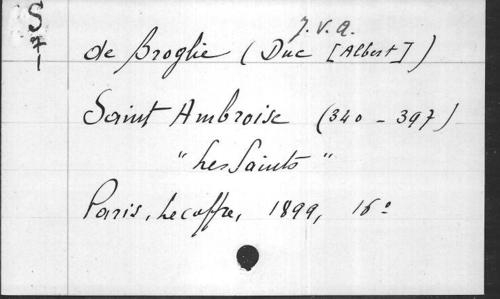 S
7
-
J. V. A.
de Broglie (Duc [Albert])
Saint Ambroise (340 - 397)
"Les Saints"
Paris, Lecoffre, 1899, 16°